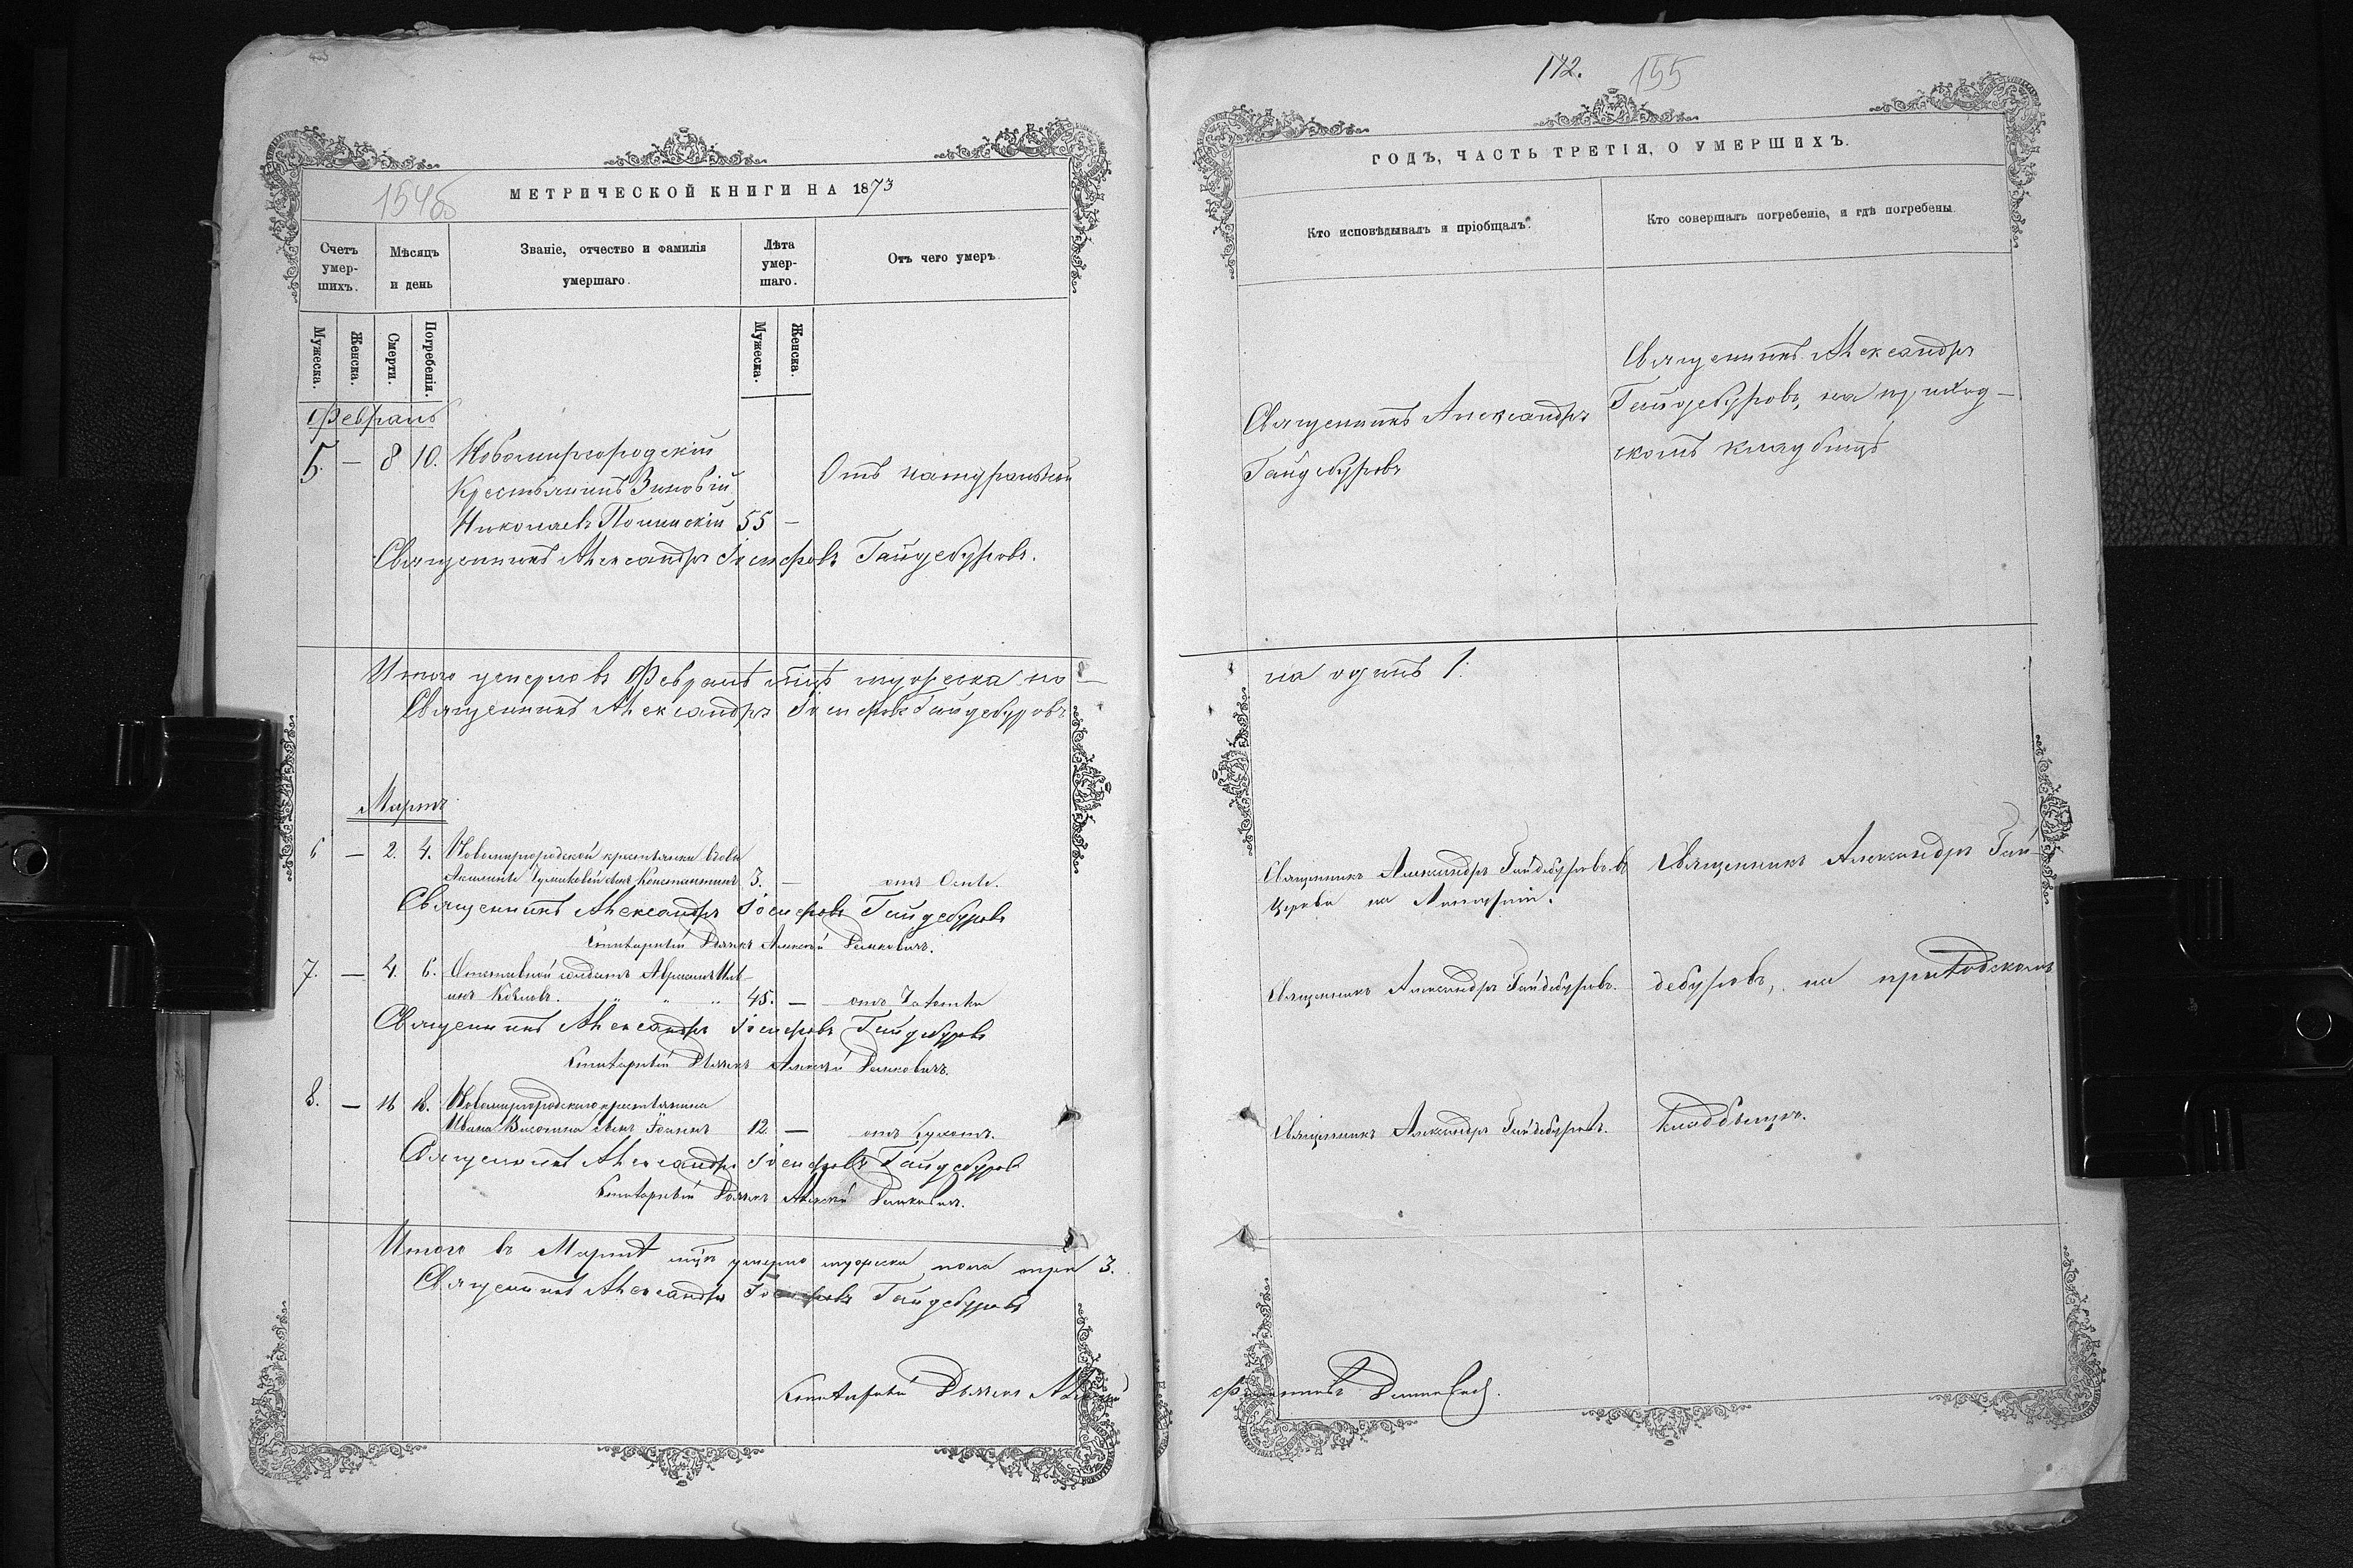 154б
МЕТРИЧЕСКОЙ КНИГИ НА 1873
Счетъ умер-шихъ.
Мѣсяцъ и день
Званіе, отчество и фамилія умершаго.
Лѣта умер-шаго.
Отъ чего умеръ.
Мужеска.
Женска.
Смерти.
Погребенія.
Мужеска.
Женска.
Февраль
5. — 8 10. Новомиргородскій
Крестьянинъ Зиновій
Николаевъ 55 —
Отъ натуральной
Священникъ Александръ Іосифовъ Гайдебуровъ.
Итого умерло въ Февралѣ м̃цѣ мужеска по-
Священникъ Александръ Іосифовъ Гайдебуровъ
Мартъ
6 — 2. 4. Новомиргородской крестьянки вдовы
сынъ Константинъ 3. — отъ Оспы.
Священникъ Александръ Іосифовъ Гайдебуровъ
Дьячекъ Алексѣй
7. — 4. 6. Отставной солдатъ
45. — отъ
Священникъ Александръ Іосифовъ Гайдебуровъ
Дьячекъ Алексѣй
8. — 16 18. Новомиргородскаго крестьянина
Ивана сынъ Іоаннъ 12. — отъ
Священникъ Александръ Іосифовъ Гайдебуровъ
Дьячекъ Алексѣй
Итого въ Мартѣ м̃цѣ умерло мужеска пола три 3.
Священникъ Александръ Іосифовъ Гайдебуровъ
Дьячекъ Алексѣй
172.
155
ГОДЪ, ЧАСТЬ ТРЕТІЯ, О УМЕРШИХЪ.
Кто исповѣдывалъ и пріобщалъ.
Кто совершалъ погребеніе, и гдѣ погребены.
Священникъ Александръ
Гайдебуровъ
Священникъ Александръ
Гайдебуровъ, на приход-
скомъ кладбищѣ
ла одинъ 1.
Священникъ Александръ Гайдебуровъ въ
Церкви на Литургіи.
Священникъ Александръ Гай-
Священникъ Александръ Гайдебуровъ.
дебуровъ, на приходскомъ
Священникъ Александръ Гайдебуровъ.
кладбищѣ.